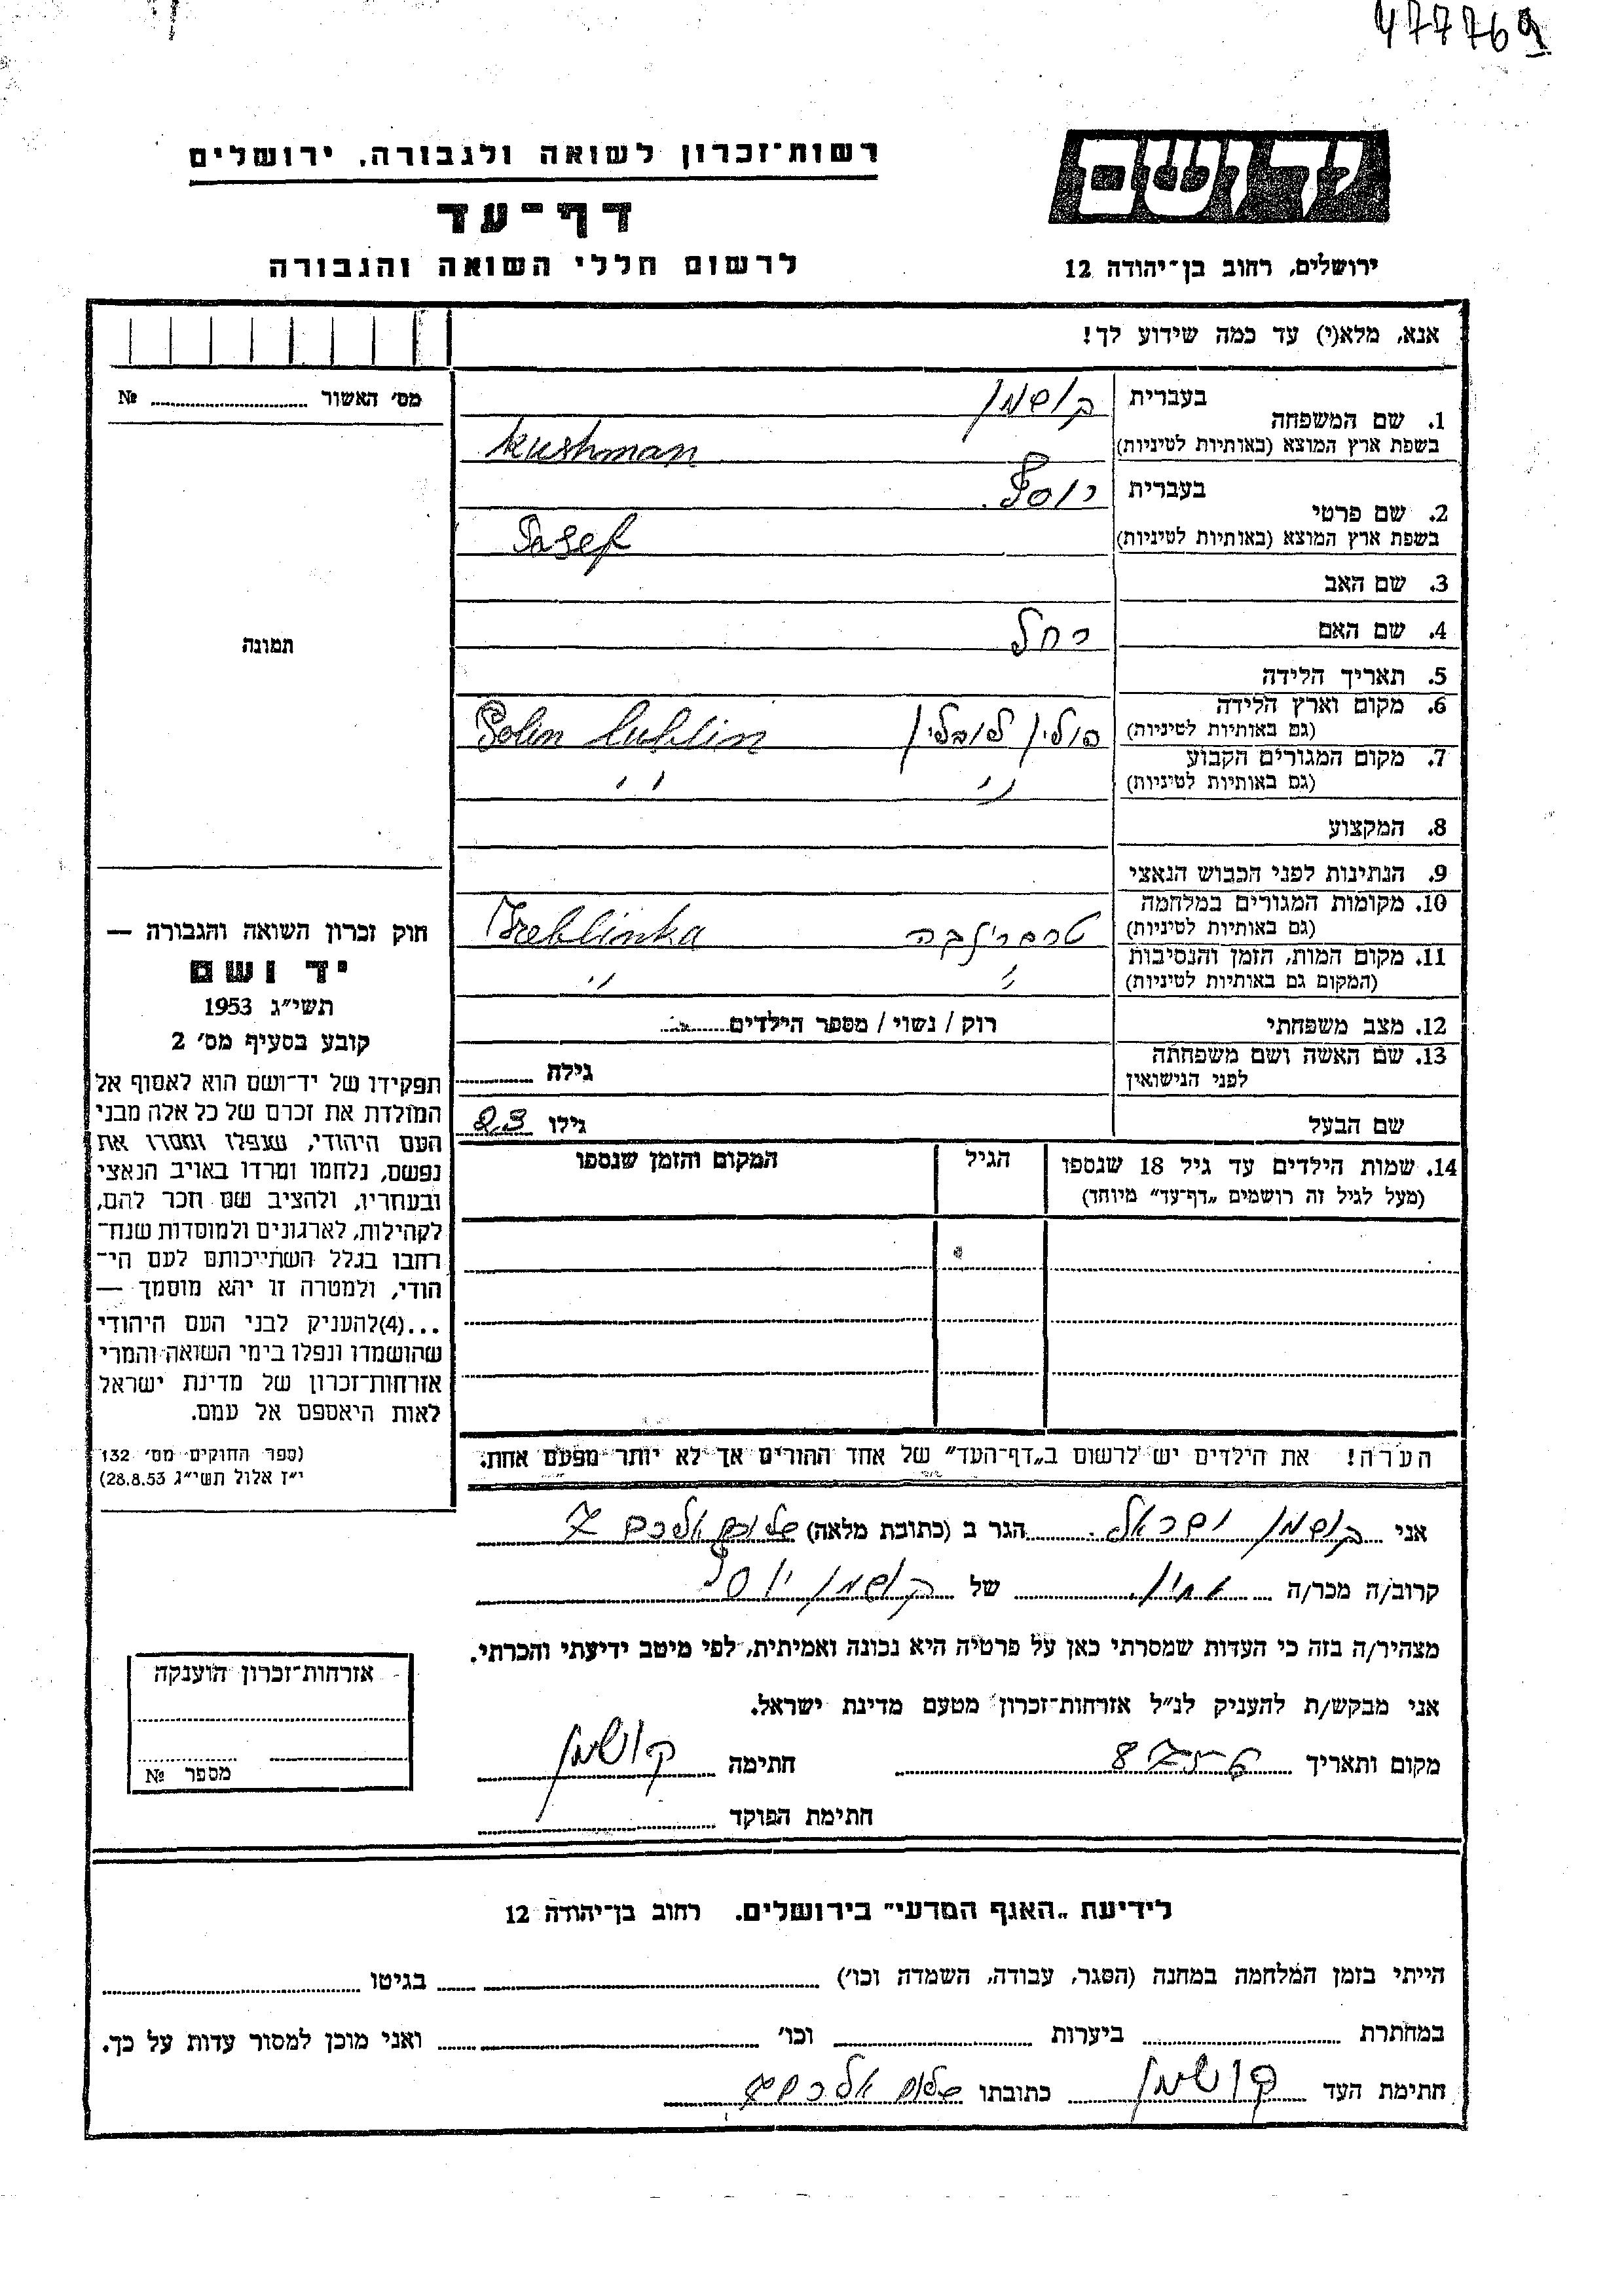 477769
רשות־זכרון לשואה ולגבורה, ירושלים
דף־עד
לרשום חללי השואה והגבורה
ידושם
ירושלים, רחוב בן־יהודה 12
אנא, מלא(י) עד כמה שידוע לך!
מס׳ האשור № 
תמונה
1. שם המשפחה בעברית קושמן
בשפת ארץ המוצא (באותיות לטיניות) Kushman
2. שם פרטי בעברית יוסף
בשפת ארץ המוצא (באותיות לטיניות) Iosef
3. שם האב
4. שם האם רחל
5. תאריך הלידה
6. מקום וארץ הלידה (גם באותיות לטיניות) פולין לובלין Polin Lublin
7. מקום המגורים הקבוע (גם באותיות לטיניות) ״ ״
8. המקצוע
9. הנתינות לפני הכבוש הנאצי
10. מקומות המגורים במלחמה (גם באותיות לטיניות) טרבלינקה Treblinka
11. מקום המות, הזמן והנסיבות (המקום גם באותיות לטיניות) ״ ״
12. מצב משפחתי רוק / נשוי / מספר הילדים
13. שם האשה ושם משפחתה לפני הנישואין גילה
שם הבעל גילו 23
14. שמות הילדים עד גיל 18 שנספו
(מעל לגיל זה רושמים „דף־עד״ מיוחד)
הגיל
המקום והזמן שנספו
חוק זכרון השואה והגבורה —
יד ושם
תשי״ג 1953
קובע בסעיף מס׳ 2
תפקידו של יד־ושם הוא לאסוף אל
המולדת את זכרם של כל אלה מבני
העם היהודי, שנפלו ומסרו את
נפשם, נלחמו ומרדו באויב הנאצי
ובעוזריו, ולהציב שם וזכר להם,
לקהילות, לארגונים ולמוסדות שנח־
רחבו בגלל השתייכותם לעם הי־
הודי, ולמטרה זו יהא מוסמך —
...(4)להעניק לבני העם היהודי
שהושמדו ונפלו בימי השואה והמרי
אזרחות־זכרון של מדינת ישראל
לאות היאספם אל עמם.
(ספר החוקים מס׳ 132
י״ז אלול תשי״ג 28.8.53)
הערה! את הילדים יש לרשום ב„דף־העד״ של אחד ההורים אך לא יותר מפעם אחת.
אני קושמן ישראל הגר ב (כתובת מלאה) שלום אלכם 7
קרוב/ה מכר/ה אחיו של קושמן יוסף
מצהיר/ה בזה כי העדות שמסרתי כאן על פרטיה היא נכונה ואמיתית, לפי מיטב ידיעתי והכרתי.
אני מבקש/ת להעניק לנ״ל אזרחות־זכרון מטעם מדינת ישראל.
מקום ותאריך חתימה קושמן
חתימת הפוקד
אזרחות־זכרון הוענקה
מספר №
לידיעת „האגף המדעי״ בירושלים, רחוב בן־יהודה 12
הייתי בזמן המלחמה במחנה (הסגר, עבודה, השמדה וכו׳) בגיטו
במחתרת ביערות וכו׳ ואני מוכן למסור עדות על כך.
חתימת העד קושמן כתובתו שלום אלכם 7